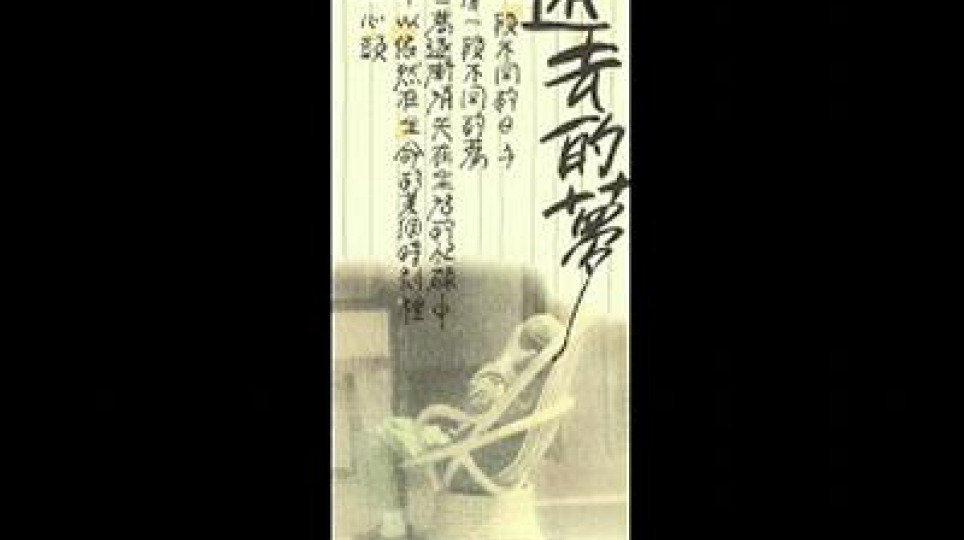 逝去的夢
段不同的日子
一段不同的夢
逐漸消失在生活的忙碌中
依然在生命的某個時刻
心頭